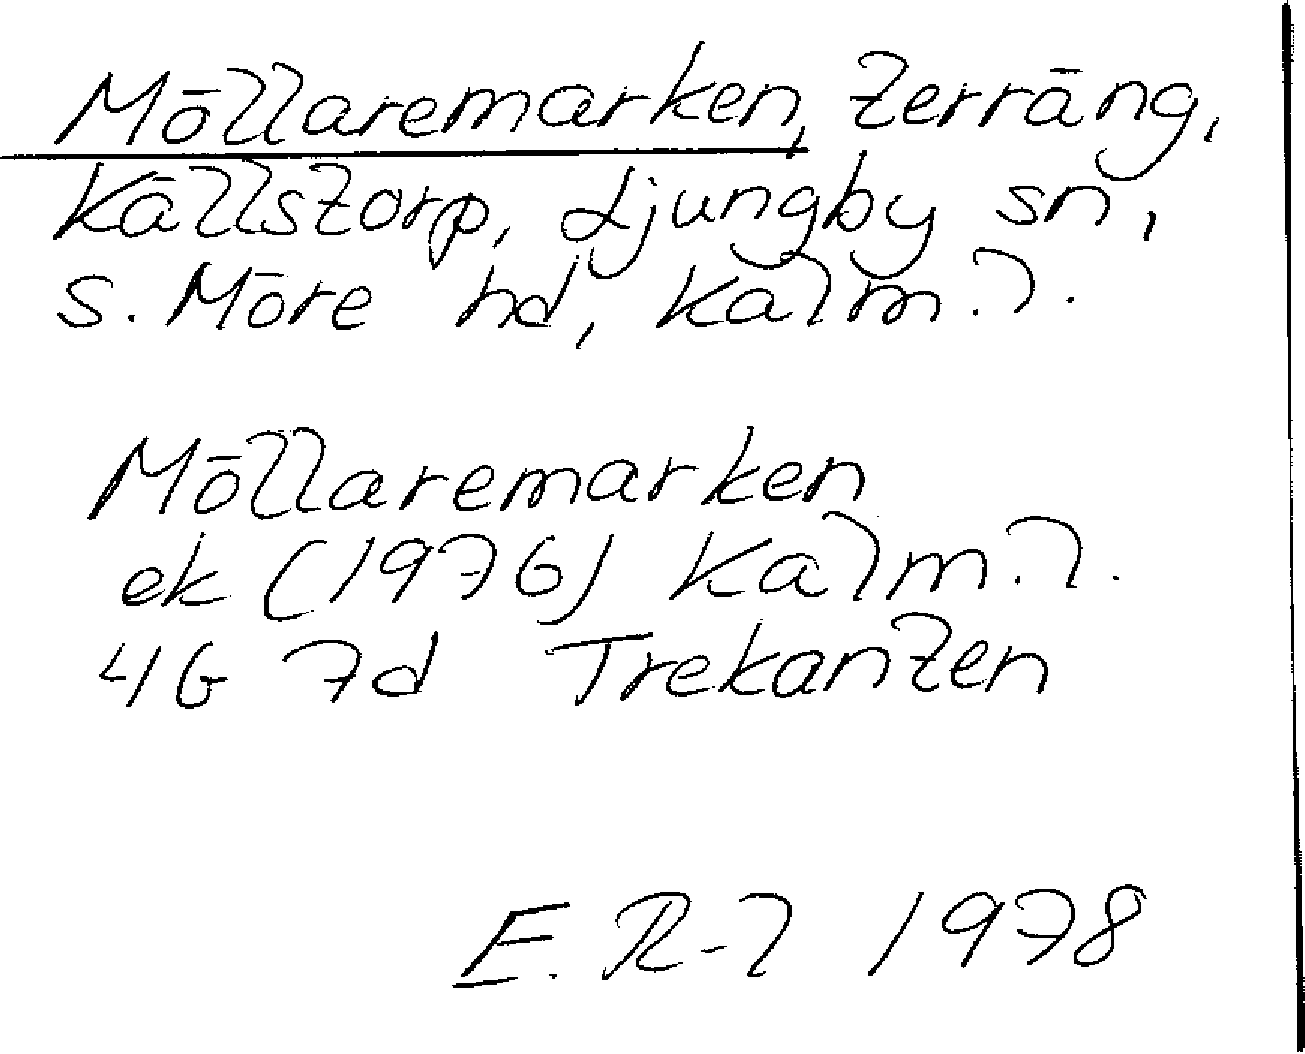 Möllaremarken, terräng,
Källstorp, Ljungby sn,
S. Möre hd, Kalm. l.
Möllaremarken
ek (1976) Kalm. l.
4G 7d Trekanten
E. R-l 1978